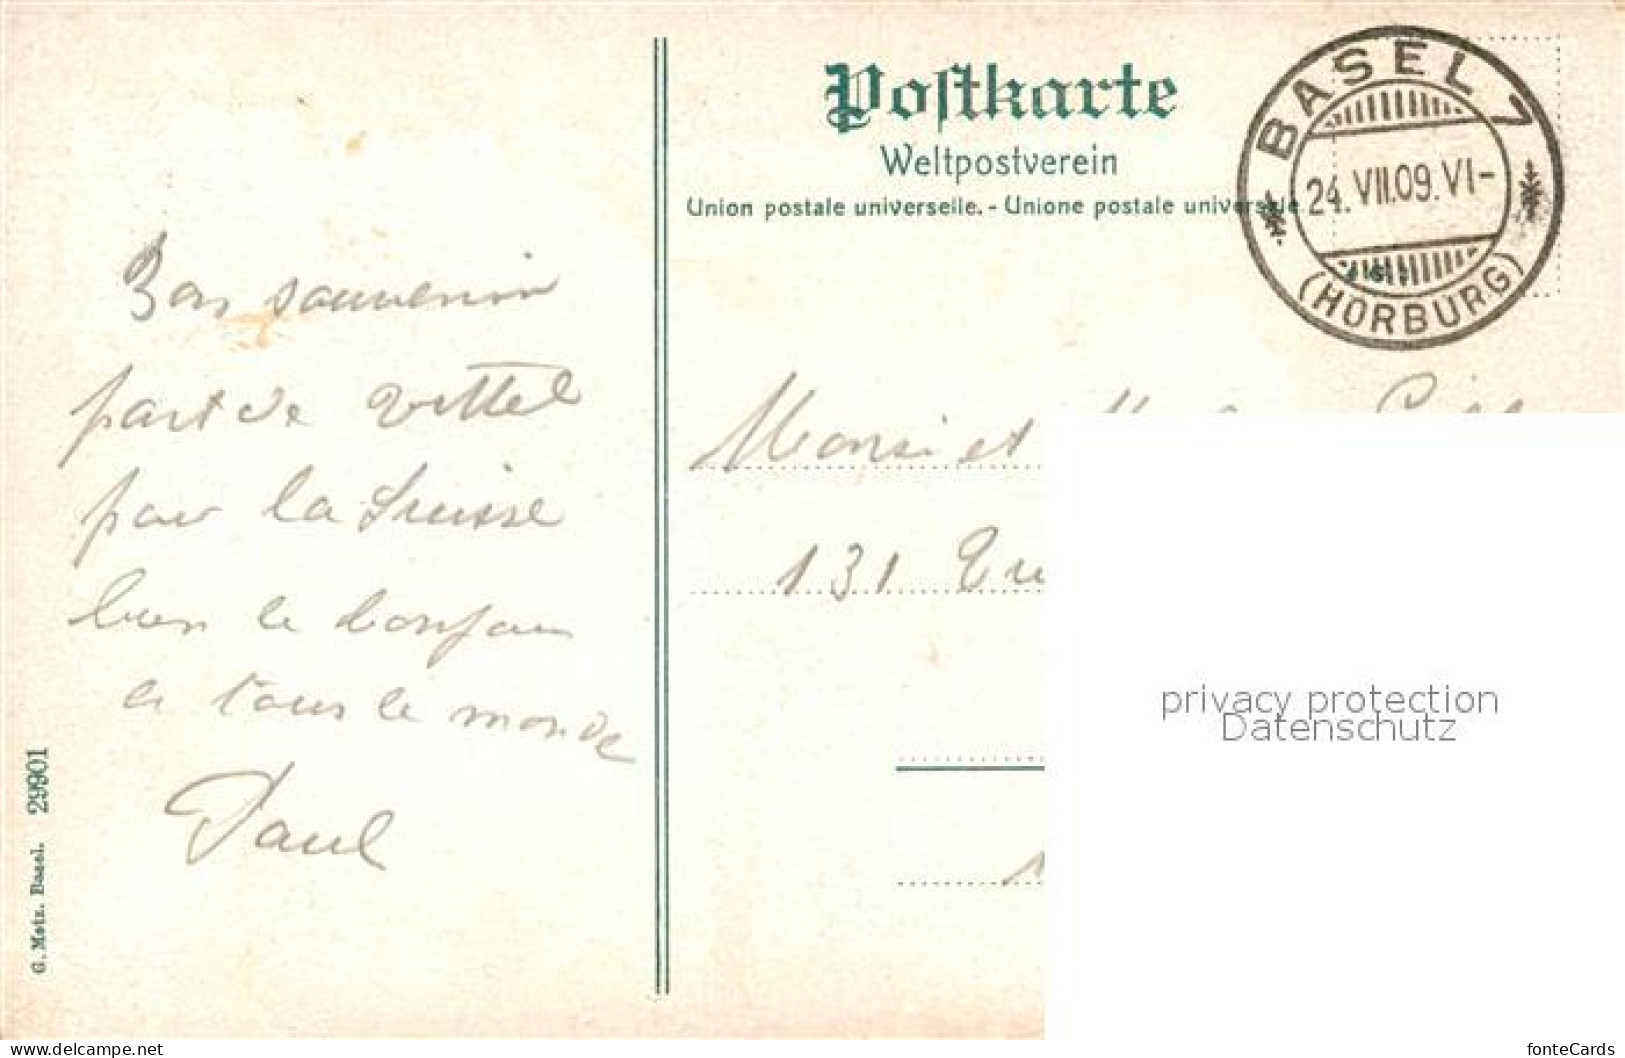 Postkarte
Weltpostverein
Union postale universelle. - Unione postale universale
BASEL 7
24.VII.09.VI-
(HORBURG)
Bon souvenir
part de Vittel
par la Suisse
bien le bonjour
a tous le monde
Paul
Monsi et
131
privacy protection
Datenschutz
G. Metz. Basel. 29901
www.delcampe.net
fonteCards